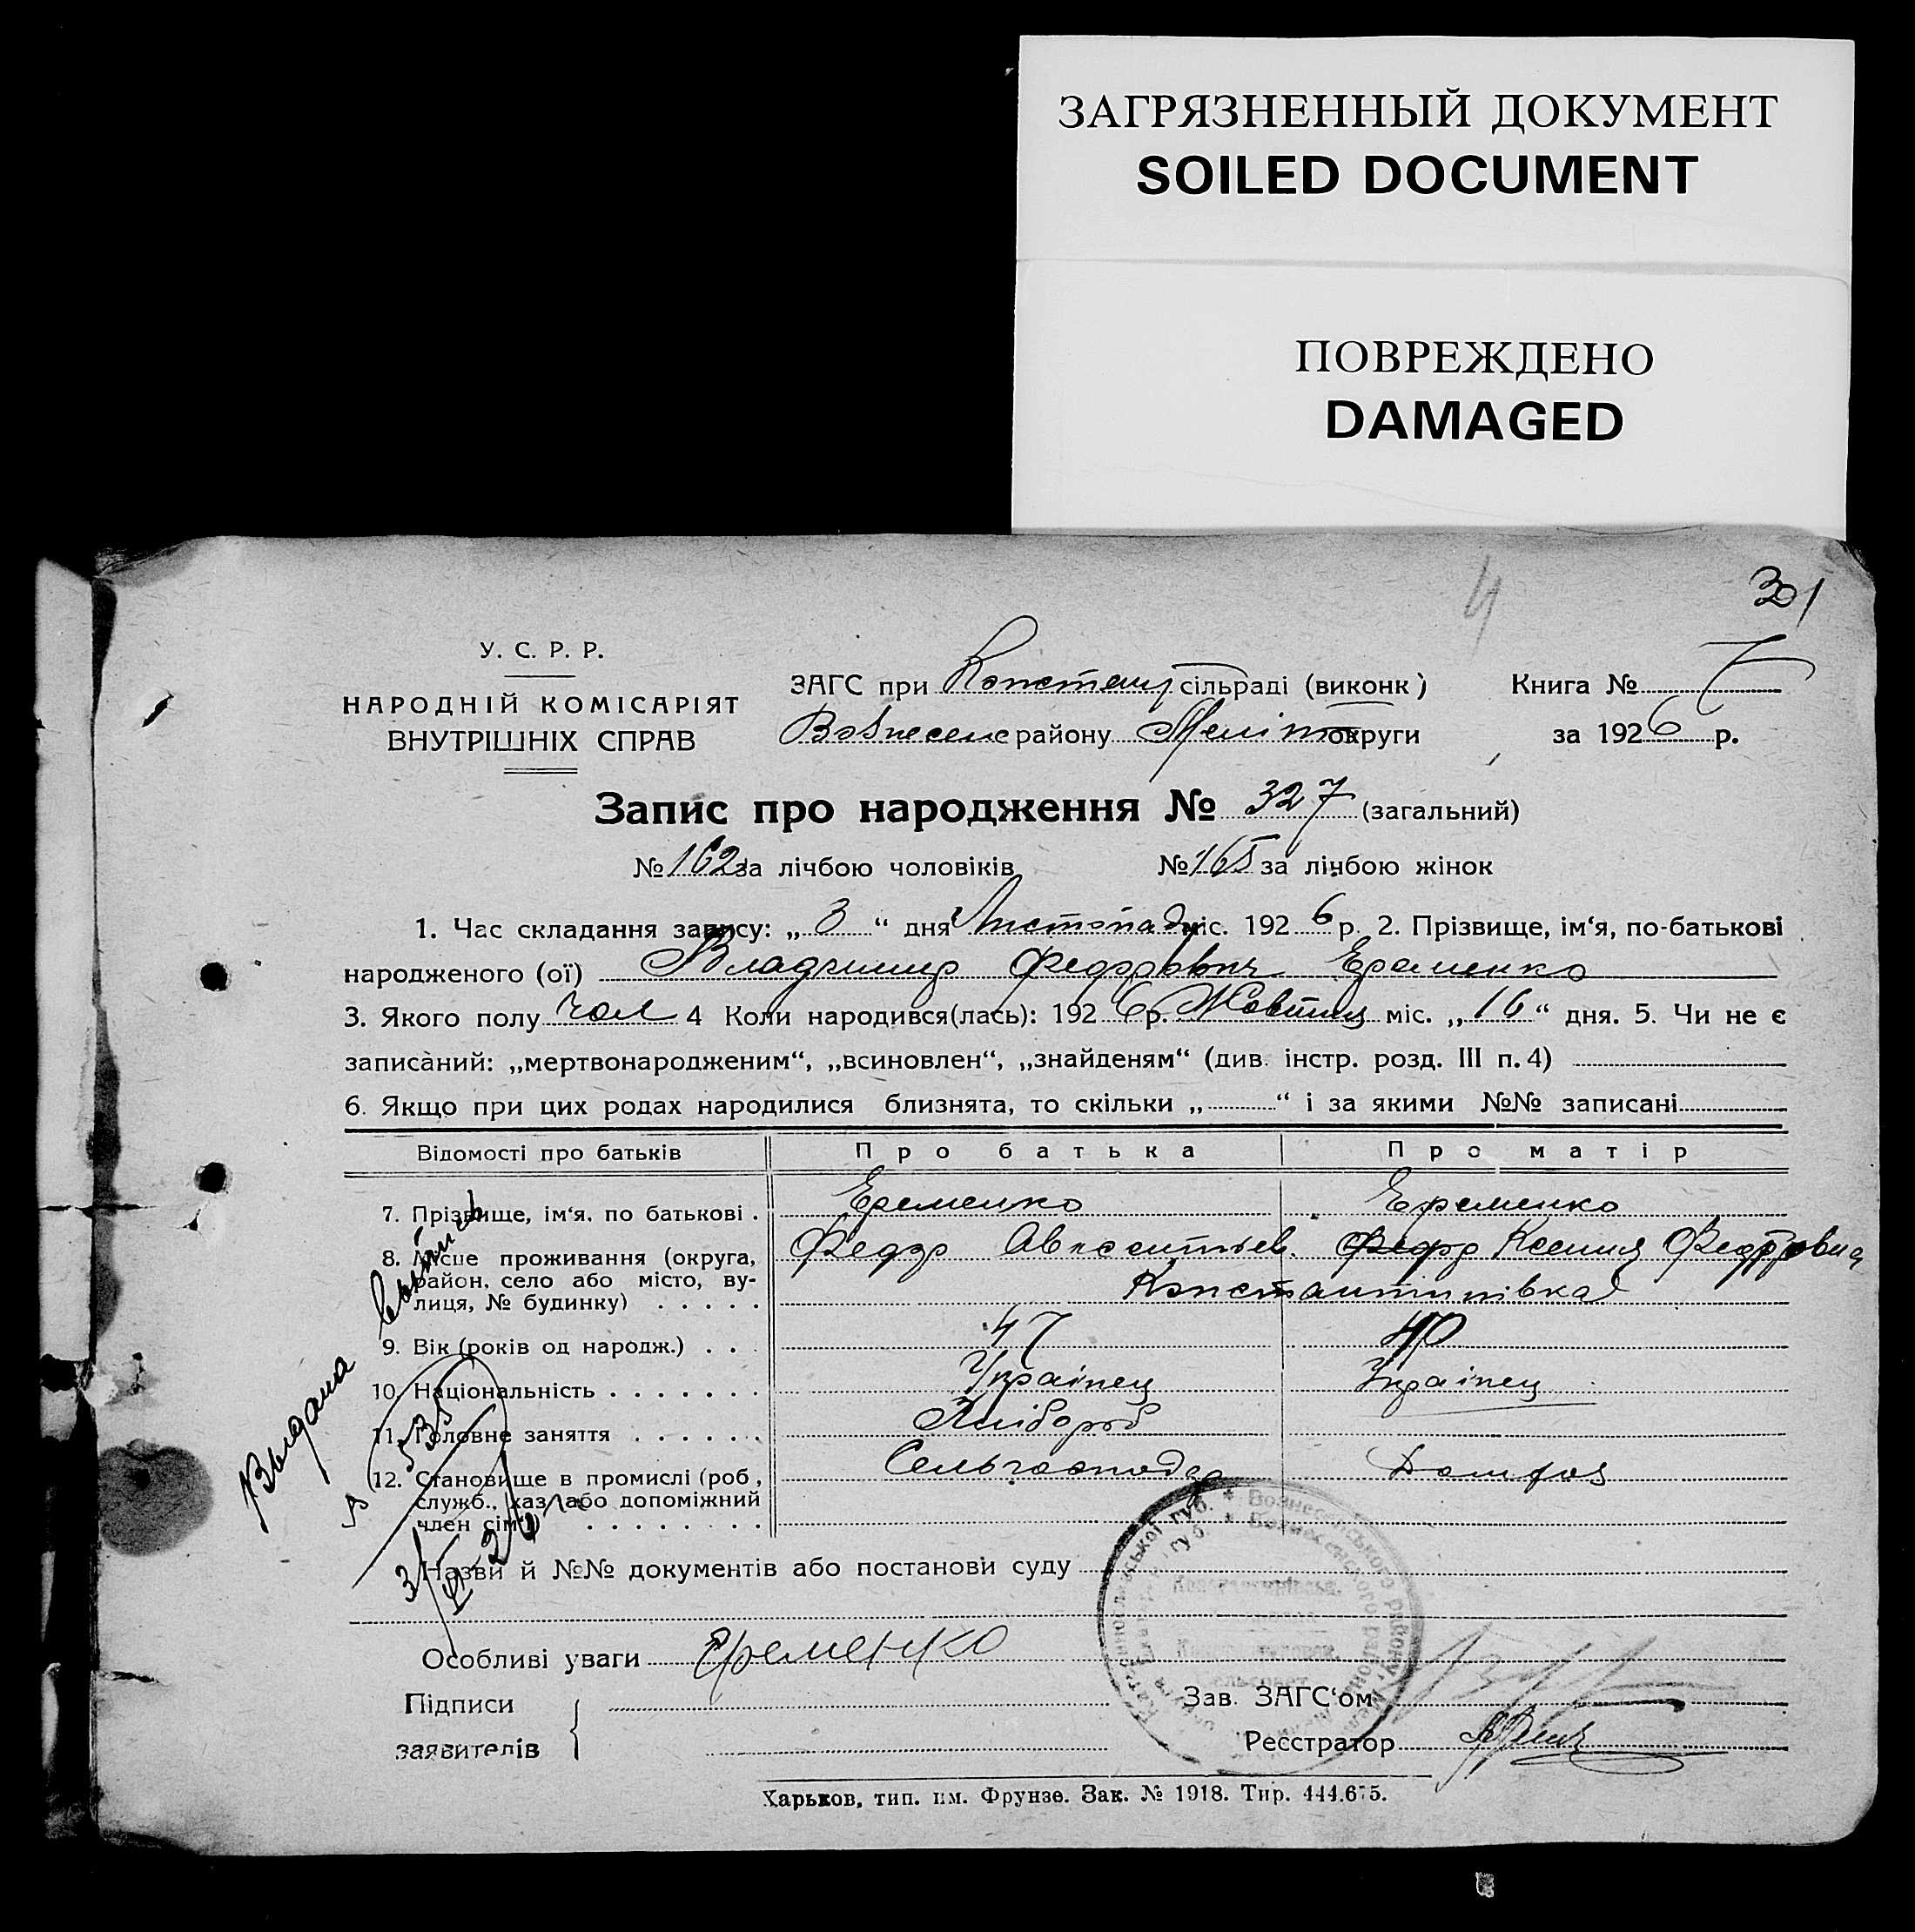 ЗАГРЯЗНЕННЫЙ ДОКУМЕНТ
SOILED DOCUMENT
ПОВРЕЖДЕНО
DAMAGED
4
301
У. С. Р. Р.
НАРОДНІЙ КОМІСАРІЯТ
ВНУТРІШНІХ СПРАВ
ЗАГС при Констант сільраді (виконк) Книга № 7
Вознесенс району Меліт округи за 1926 р.
Запис про народження № 327 (загальний)
№ 162 за лічбою чоловіків № 165 за лічбою жінок
1. Час складання запису: „ 3 “ дня Листопада міс. 1926 р. 2. Прізвище, ім‘я, по-батькові
народженого (ої) Владимир Федорович Еременко
3. Якого полу чол 4 Коли народився(лась): 1926 р. Жовтня міс. „ 16 “ дня. 5. Чи не є
записаний: „мертвонародженим“, „всиновлен“, „знайденям“ (див. інстр. розд. III п. 4)
6. Якщо при цих родах народилися близнята, то скільки „ “ і за якими №№ записані
Відомості про батьків Про батька Про матір
7. Прізвище, ім‘я, по батькові . Еременко Еременко
8. Місце проживання (округа, Федор Авксентьев. Ксения Федоровна
район, село або місто, ву-
лиця, № будинку) . . . . . Константинівка
9. Вік (років од народж.) . . . 47 40
10. Національність . . . . . . . Українец Українец
11. Головне заняття . . . . . . Хлібороб
12. Становище в промислі (роб., Сельгосподар Домгос
служб., хаз. або допоміжний
член сім‘ї) . . . . . . . .
Выдана выпись
Назви й №№ документів або постанови суду
Особливі уваги Еременко
Підписи
заявителів
Зав. ЗАГС‘ом
Реєстратор
Харьков, тип. им. Фрунзе. Зак. № 1918. Тир. 444.675.